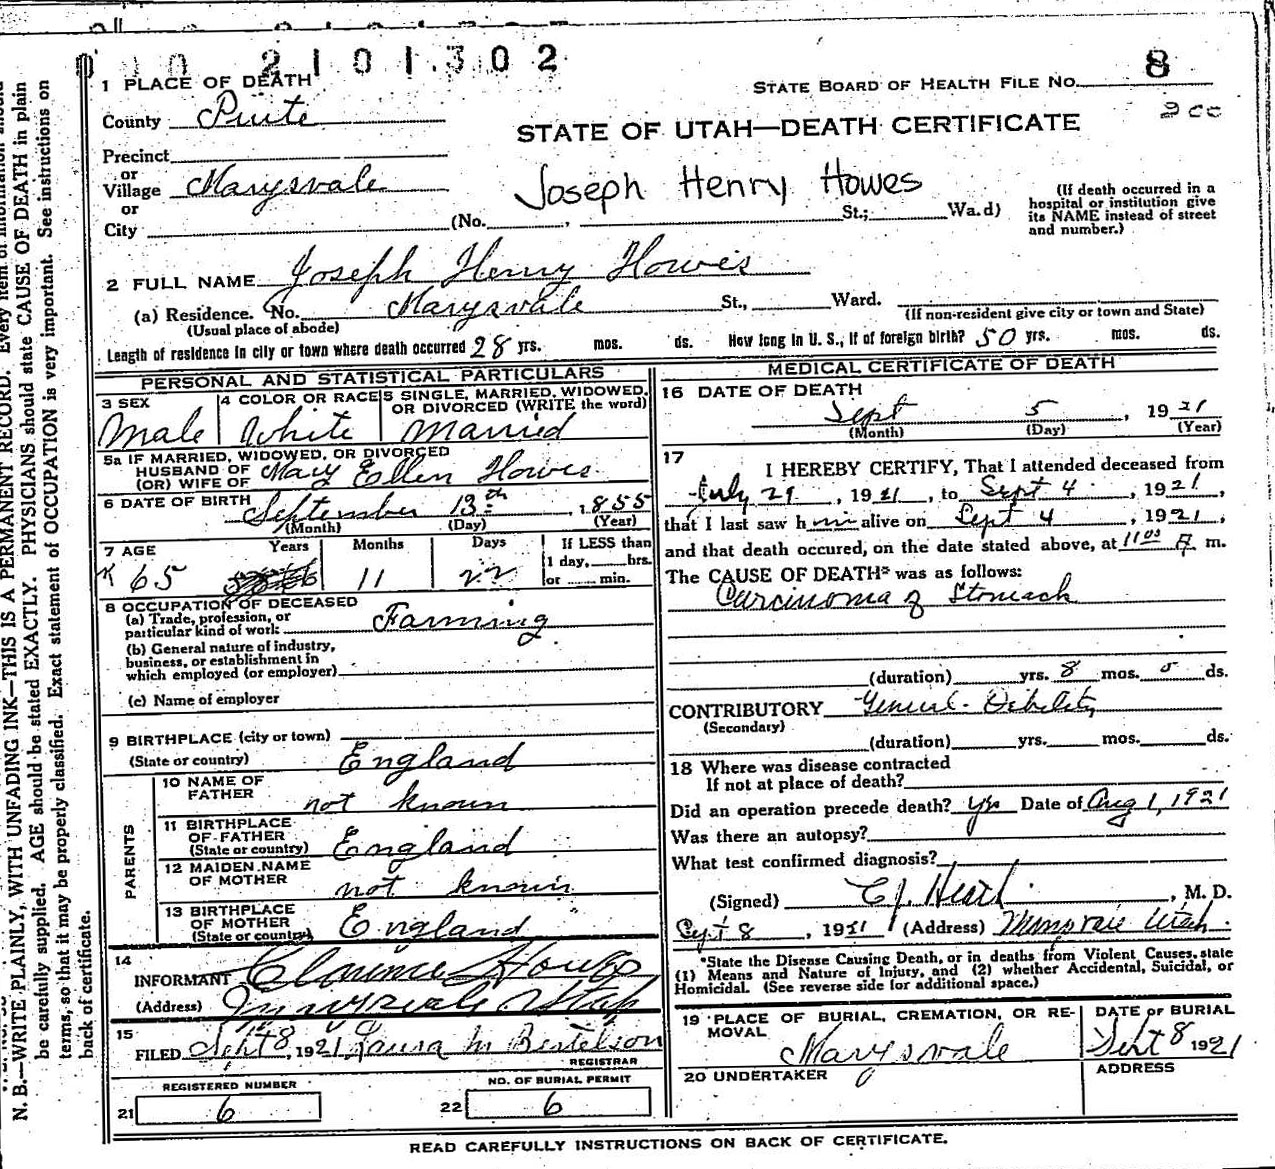 2101302
1 PLACE OF DEATH
STATE BOARD OF HEALTH FILE NO. 8
County Piute
STATE OF UTAH—DEATH CERTIFICATE
Precinct
or
Village Marysvale
Joseph Henry Howes
or
City (No. , St.; Wa.d)
(If death occurred in a
hospital or institution give
its NAME instead of street
and number.)
2 FULL NAME Joseph Henry Howes
(a) Residence. No. Marysvale St., Ward.
(Usual place of abode)
(If non-resident give city or town and State)
Length of residence in city or town where death occurred 28 yrs. mos. ds. How long in U. S., if of foreign birth? 50 yrs. mos. ds.
PERSONAL AND STATISTICAL PARTICULARS
3 SEX
Male
4 COLOR OR RACE
White
5 SINGLE, MARRIED, WIDOWED,
OR DIVORCED (WRITE the word)
Married
5a IF MARRIED, WIDOWED, OR DIVORCED
HUSBAND OF
(OR) WIFE OF Mary Ellen Howes
6 DATE OF BIRTH September 13th, 1855
(Month) (Day) (Year)
7 AGE Years Months Days If LESS than
1 day, hrs.
or min.
65 11 22
8 OCCUPATION OF DECEASED
(a) Trade, profession, or
particular kind of work Farming
(b) General nature of industry,
business, or establishment in
which employed (or employer)
(c) Name of employer
9 BIRTHPLACE (city or town)
(State or country) England
PARENTS
10 NAME OF
FATHER not known
11 BIRTHPLACE
OF FATHER
(State or country) England
12 MAIDEN NAME
OF MOTHER not known
13 BIRTHPLACE
OF MOTHER
(State or country) England
14
INFORMANT Clarence Howes
(Address) Marysvale Utah
15
FILED Sept 8, 1921 Laura M Bertelson
REGISTRAR
REGISTERED NUMBER
21 6
NO. OF BURIAL PERMIT
22 6
MEDICAL CERTIFICATE OF DEATH
16 DATE OF DEATH
Sept 5, 1921
(Month) (Day) (Year)
17
I HEREBY CERTIFY, That I attended deceased from
July 29, 1921, to Sept 4, 1921,
that I last saw him alive on Sept 4, 1921,
and that death occured, on the date stated above, at 11 00 A m.
The CAUSE OF DEATH* was as follows:
Carcinoma of Stomach
(duration) yrs. 8 mos. 0 ds.
CONTRIBUTORY General Debility
(Secondary)
(duration) yrs. mos. ds.
18 Where was disease contracted
If not at place of death?
Did an operation precede death? yes Date of Aug 1, 1921
Was there an autopsy?
What test confirmed diagnosis?
(Signed) , M. D.
Sept 8, 1921 (Address) Utah
*State the Disease Causing Death, or in deaths from Violent Causes, state
(1) Means and Nature of Injury, and (2) whether Accidental, Suicidal, or
Homicidal. (See reverse side for additional space.)
19 PLACE OF BURIAL, CREMATION, OR RE-
MOVAL
Marysvale
DATE OF BURIAL
Sept 8 1921
20 UNDERTAKER
ADDRESS
READ CAREFULLY INSTRUCTIONS ON BACK OF CERTIFICATE.
N. B.—WRITE PLAINLY, WITH UNFADING INK—THIS IS A PERMANENT RECORD. Every item of information should
be carefully supplied. AGE should be stated EXACTLY. PHYSICIANS should state CAUSE OF DEATH in plain
terms, so that it may be properly classified. Exact statement of OCCUPATION is very important. See instructions on
back of certificate.